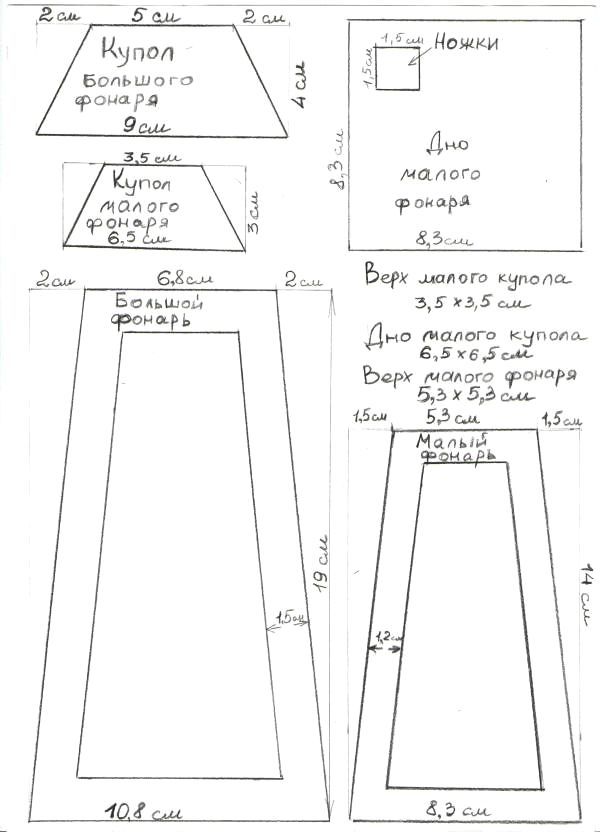 2 см 5 см 2 см
Купол
Большого
фонаря
4 см
9 см
3,5 см
Купол
малого
фонаря
6,5 см
3 см
1,5 см
Ножки
1,5 см
Дно
малого
фонаря
8,3 см
8,3 см
Верх малого купола
3,5 × 3,5 см
Дно малого купола
6,5 × 6,5 см
Верх малого фонаря
5,3 × 5,3 см
2 см 6,8 см 2 см
Большой
фонарь
1,5 см
19 см
10,8 см
1,5 см 5,3 см 1,5 см
Малый
фонарь
1,2 см
14 см
8,3 см